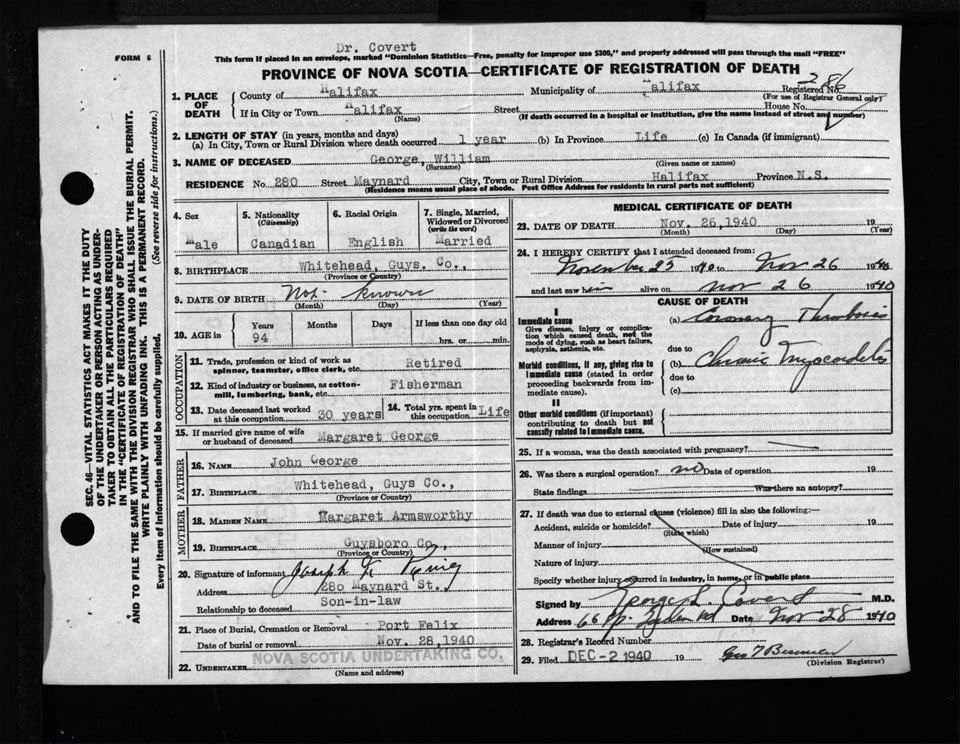 Dr. Covert
FORM 6
This form if placed in an envelope, marked "Dominion Statistics—Free, penalty for improper use $300," and properly addressed will pass through the mail "FREE"
PROVINCE OF NOVA SCOTIA—CERTIFICATE OF REGISTRATION OF DEATH
286
1. PLACE OF DEATH
County of Halifax Municipality of Halifax Registered No.
(For use of Registrar General only)
If in City or Town Halifax Street House No.
(Name) (If death occurred in a hospital or institution, give the name instead of street and number)
2. LENGTH OF STAY (in years, months and days)
(a) In City, Town or Rural Division where death occurred 1 year (b) In Province Life (c) In Canada (if immigrant)
3. NAME OF DECEASED George, William
(Surname) (Given name or names)
RESIDENCE No. 280 Street Maynard City, Town or Rural Division Halifax Province N.S.
(Residence means usual place of abode. Post Office Address for residents in rural parts not sufficient)
4. Sex
Male
5. Nationality
(Citizenship)
Canadian
6. Racial Origin
English
7. Single, Married, Widowed or Divorced
(write the word)
Married
8. BIRTHPLACE Whitehead, Guys. Co.,
(Province or Country)
9. DATE OF BIRTH Not Known
(Month) (Day) (Year)
10. AGE in
Years Months Days If less than one day old
94 hrs. or min.
OCCUPATION
11. Trade, profession or kind of work as spinner, teamster, office clerk, etc. Retired
12. Kind of industry or business, as cotton-mill, lumbering, bank, etc. Fisherman
13. Date deceased last worked at this occupation 30 years
14. Total yrs. spent in this occupation Life
15. If married give name of wife or husband of deceased Margaret George
FATHER
16. NAME John George
17. BIRTHPLACE Whitehead, Guys Co.,
(Province or Country)
MOTHER
18. MAIDEN NAME Margaret Armsworthy
19. BIRTHPLACE Guysboro Co.,
(Province or Country)
20. Signature of informant Joseph
Address 280 Maynard St.,
Relationship to deceased Son-in-law
21. Place of Burial, Cremation or Removal Port Felix
Date of burial or removal Nov. 28, 1940
22. UNDERTAKER NOVA SCOTIA UNDERTAKING CO.
(Name and address)
MEDICAL CERTIFICATE OF DEATH
23. DATE OF DEATH Nov. 26, 1940 19
(Month) (Day) (Year)
24. I HEREBY CERTIFY that I attended deceased from:
November 25 1940 to Nov 26 1940
and last saw him alive on Nov 26 1940
CAUSE OF DEATH
I
Immediate cause
Give disease, injury or complication which caused death, not the mode of dying, such as heart failure, asphyxia, asthenia, etc.
(a) Coronary Thrombosis
due to
Morbid conditions, if any, giving rise to immediate cause (stated in order proceeding backwards from immediate cause).
(b) Chronic Myocarditis
due to
(c)
II
Other morbid conditions (if important) contributing to death but not causally related to immediate cause.
25. If a woman, was the death associated with pregnancy?
26. Was there a surgical operation? no Date of operation 19
State findings Was there an autopsy?
27. If death was due to external causes (violence) fill in also the following:—
Accident, suicide or homicide? Date of injury 19
(State which)
Manner of injury
(How sustained)
Nature of injury
Specify whether injury occurred in industry, in home, or in public place
Signed by George L. Covert M.D.
Address Date Nov 28 1940
28. Registrar's Record Number
29. Filed DEC - 2 1940 19
(Division Registrar)
SEC. 46—VITAL STATISTICS ACT MAKES IT THE DUTY
OF THE UNDERTAKER OR PERSON ACTING AS UNDER-
TAKER TO OBTAIN ALL THE PARTICULARS REQUIRED
IN THE "CERTIFICATE OF REGISTRATION OF DEATH"
AND TO FILE THE SAME WITH THE DIVISION REGISTRAR WHO SHALL ISSUE THE BURIAL PERMIT.
WRITE PLAINLY WITH UNFADING INK. THIS IS A PERMANENT RECORD.
Every item of information should be carefully supplied. (See reverse side for instructions.)